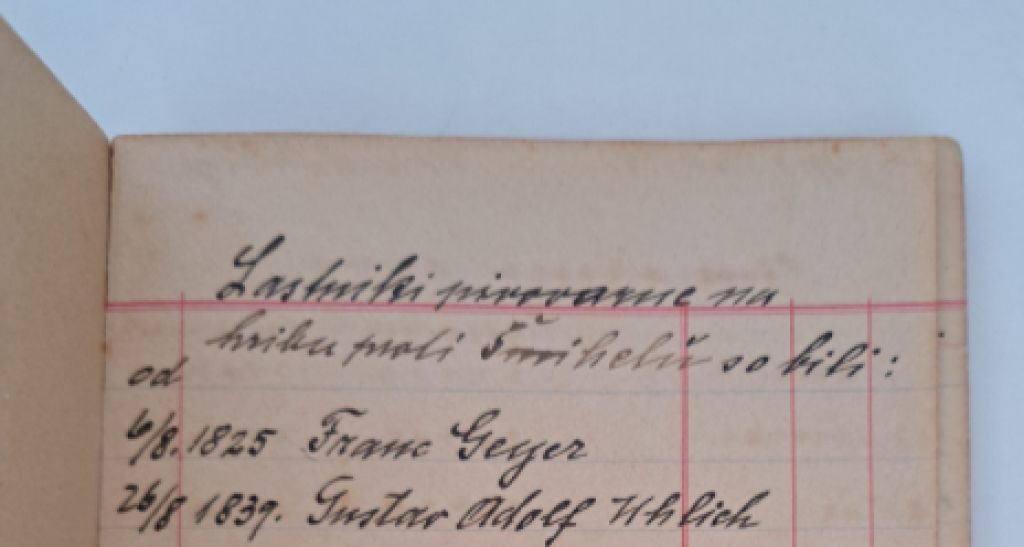 Lastniki pivovarne na
hribu proti Šmihelu so bili:
od
6/8. 1825 Franc Geyer
26/8 1839. Gustav Adolf Uhlich